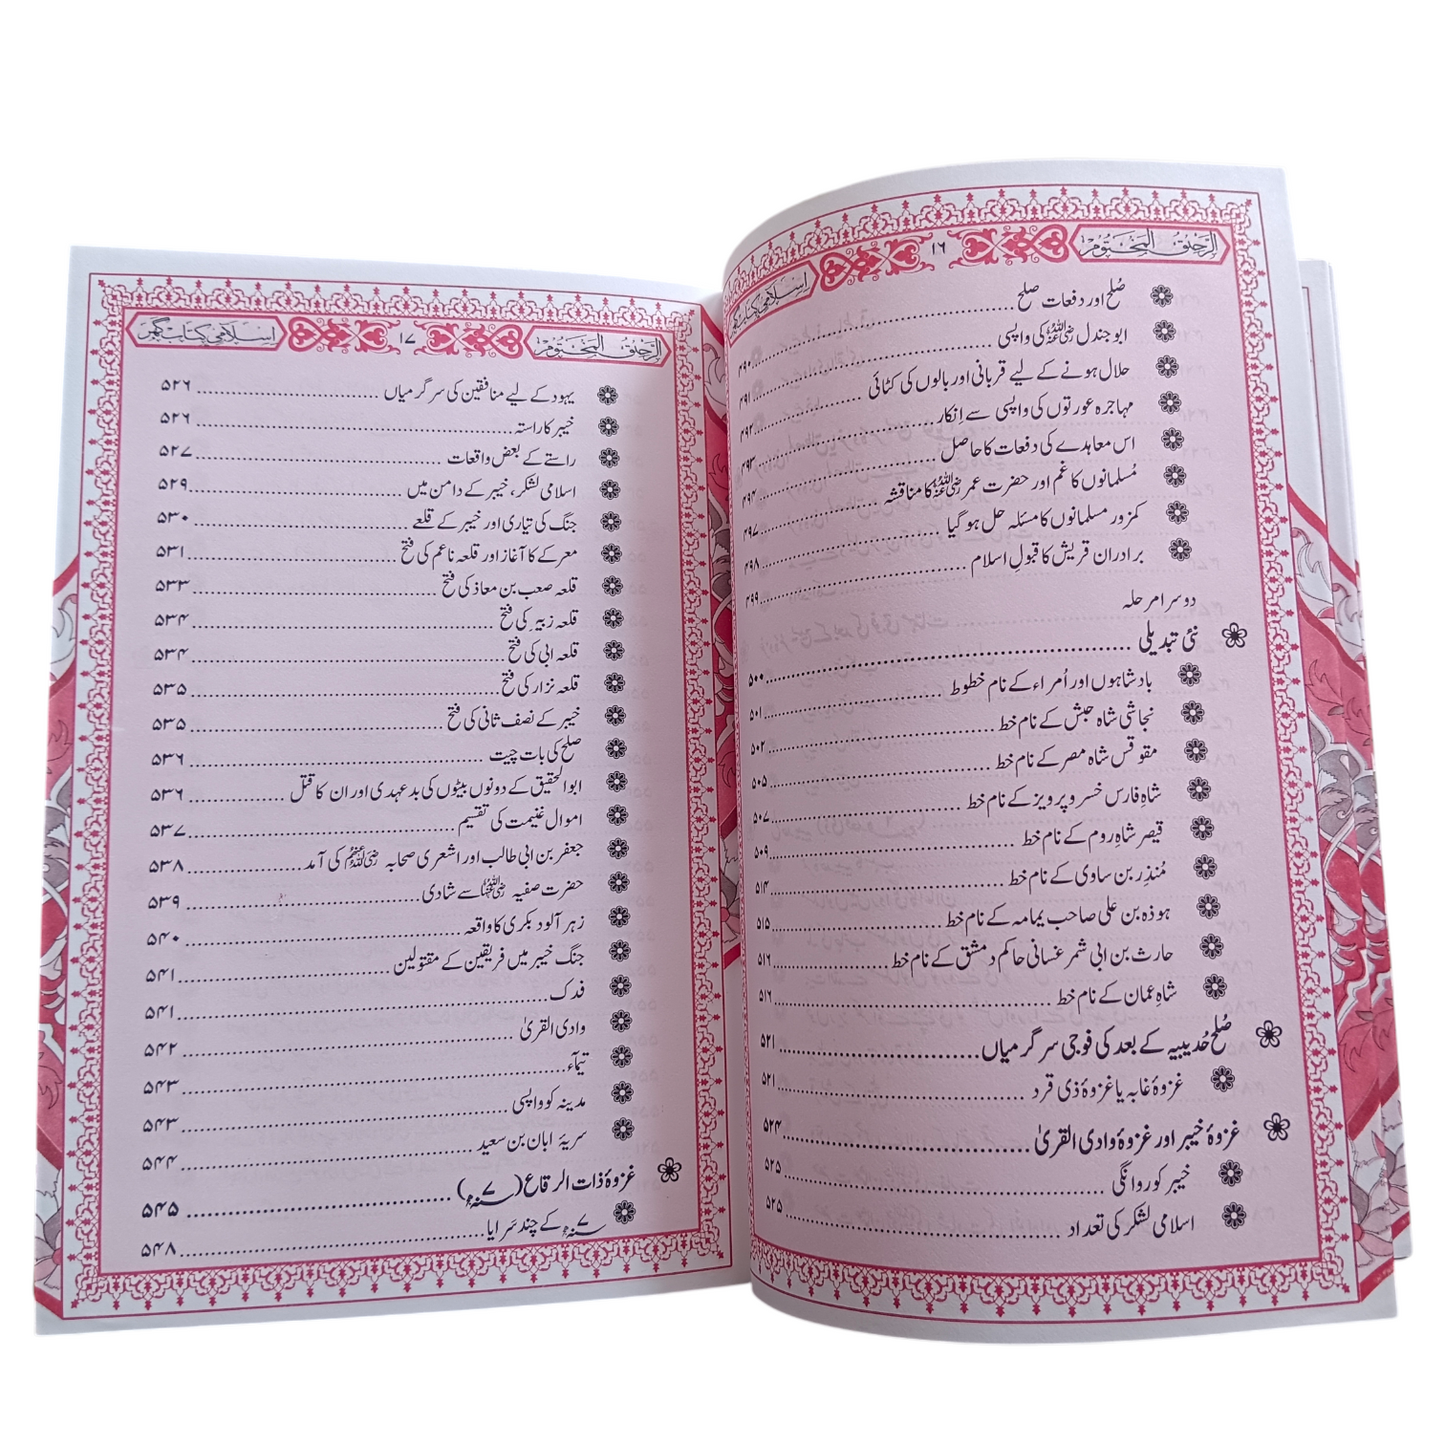 الرحیق المختوم ۱۶ اسلامی کتاب گھر
صُلح اور دفعات صلح ........ ۴۹۰
ابو جندل رضی اللہ عنہ کی واپسی ........ ۴۹۱
حلال ہونے کے لیے قربانی اور بالوں کی کٹائی ........ ۴۹۲
مہاجرہ عورتوں کی واپسی سے اِنکار ........ ۴۹۳
اس معاہدے کی دفعات کا حاصل ........ ۴۹۴
مُسلمانوں کا غم اور حضرت عمر رضی اللہ عنہ کا مناقشہ ........ ۴۹۷
کمزور مسلمانوں کا مسئلہ حل ہو گیا ........ ۴۹۸
برادران قریش کا قبولِ اسلام ........ ۴۹۹
دوسرا مرحلہ
نئی تبدیلی ........ ۵۰۰
بادشاہوں اور اُمراء کے نام خطوط ........ ۵۰۱
نجاشی شاہ حبش کے نام خط ........ ۵۰۲
مقوقس شاہ مصر کے نام خط ........ ۵۰۵
شاہِ فارس خسرو پرویز کے نام خط ........ ۵۰۷
قیصر شاہِ روم کے نام خط ........ ۵۰۹
مُنذِر بن ساوی کے نام خط ........ ۵۱۴
ہوذہ بن علی صاحب یمامہ کے نام خط ........ ۵۱۵
حارث بن ابی شمر غسانی حاکم دمشق کے نام خط ........ ۵۱۶
شاہِ عمان کے نام خط ........ ۵۱۶
صُلح حُدیبیہ کے بعد کی فوجی سرگرمیاں ........ ۵۲۱
غزوۂ غابہ یا غزوۂ ذی قرد ........ ۵۲۱
غزوۂ خیبر اور غزوۂ وادی القریٰ ........ ۵۲۴
خیبر کو روانگی ........ ۵۲۵
اسلامی لشکر کی تعداد ........ ۵۲۵
الرحیق المختوم ۱۷ اسلامی کتاب گھر
یہود کے لیے منافقین کی سرگرمیاں ........ ۵۲۶
خیبر کا راستہ ........ ۵۲۶
راستے کے بعض واقعات ........ ۵۲۷
اسلامی لشکر، خیبر کے دامن میں ........ ۵۲۹
جنگ کی تیاری اور خیبر کے قلعے ........ ۵۳۰
معرکے کا آغاز اور قلعہ ناعم کی فتح ........ ۵۳۱
قلعہ صعب بن معاذ کی فتح ........ ۵۳۳
قلعہ زبیر کی فتح ........ ۵۳۴
قلعہ ابی کی فتح ........ ۵۳۴
قلعہ نزار کی فتح ........ ۵۳۵
خیبر کے نصف ثانی کی فتح ........ ۵۳۵
صلح کی بات چیت ........ ۵۳۶
ابوالحقیق کے دونوں بیٹوں کی بدعہدی اور ان کا قتل ........ ۵۳۶
اموال غنیمت کی تقسیم ........ ۵۳۷
جعفر بن ابی طالب اور اشعری صحابہ رضی اللہ عنہم کی آمد ........ ۵۳۸
حضرت صفیہ رضی اللہ عنہا سے شادی ........ ۵۳۹
زہر آلود بکری کا واقعہ ........ ۵۴۰
جنگ خیبر میں فریقین کے مقتولین ........ ۵۴۱
فدک ........ ۵۴۱
وادی القریٰ ........ ۵۴۲
تیمآء ........ ۵۴۳
مدینہ کو واپسی ........ ۵۴۳
سریۂ ابان بن سعید ........ ۵۴۴
غزوۂ ذات الرقاع (۷ سنہ) ........ ۵۴۵
۷ سنہ کے چند سَرایا ........ ۵۴۸